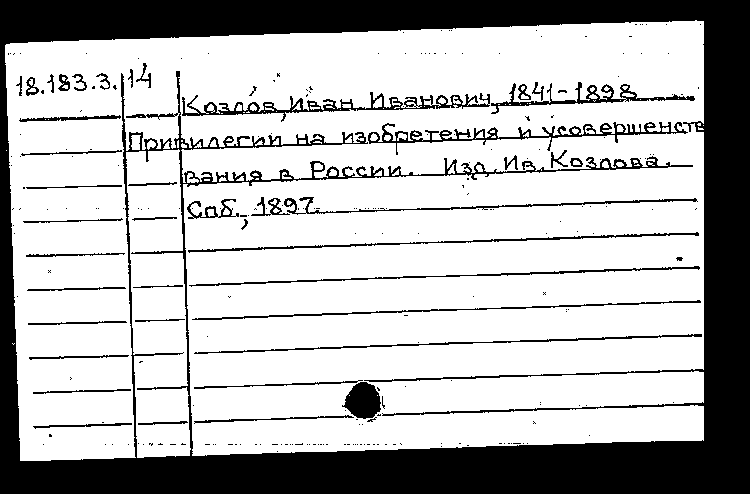 18.183.3.14
Козлов, Иван Иванович, 1841-1898
Привилегии на изобретения и усовершенст
вования в России. Изд. Ив. Козлова.
Спб., 1897.